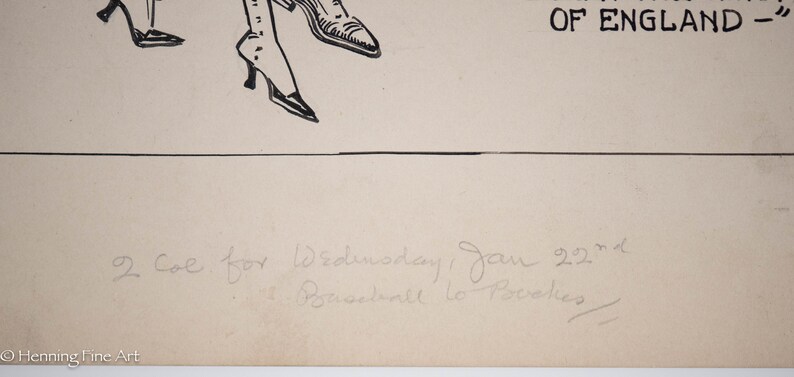 OF ENGLAND —"
2 Col for Wednesday, Jan 22nd
Baseball to
© Henning Fine Art